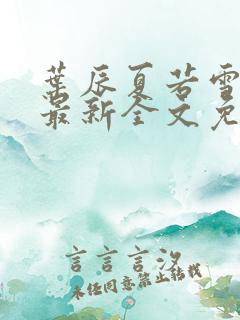 叶辰夏若雪
最新全文免
言言言汐
未经同意禁止转载